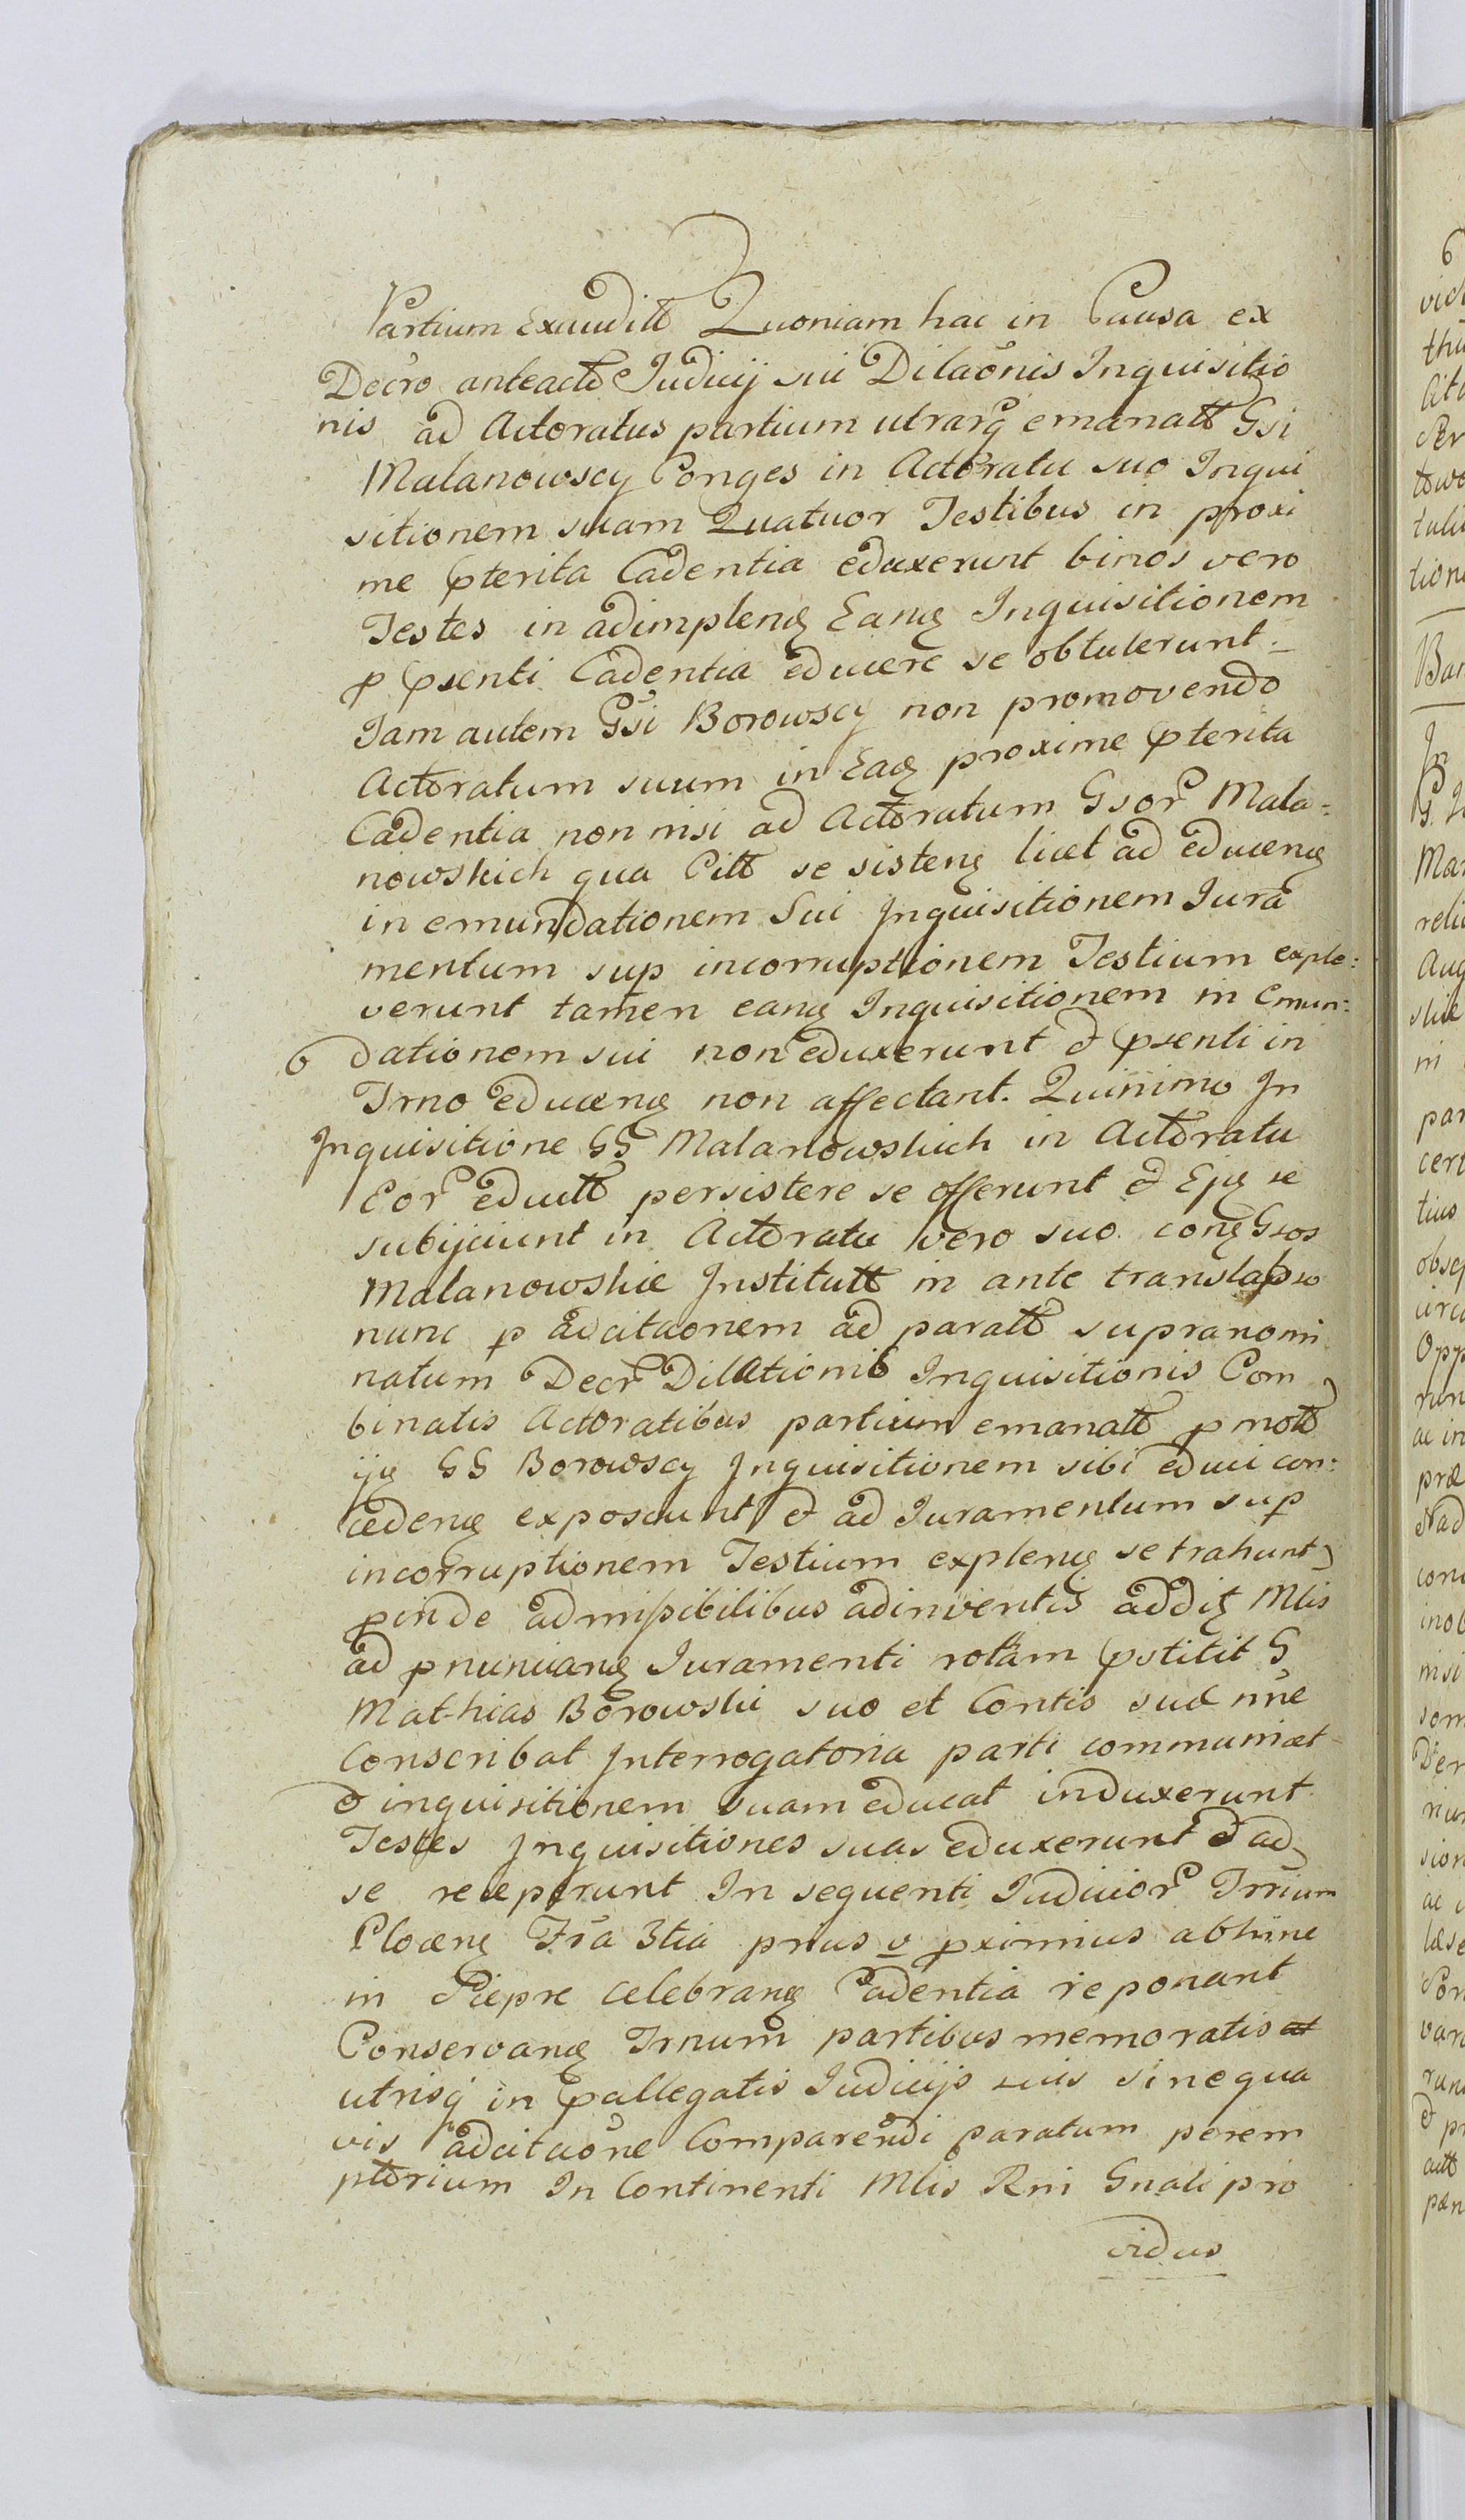 Partium Exauditt Quoniam hac in Causa ex
Decro anteactt Judicij sui Dilaonis Inquisitio
nis ad Actoratus partium utrarq emanatt Gsi
Malanowscy Conges in Actoratu suo Inqui
sitionem suam Quatuor Testibus in proxi
me pterita Cadentia eduxerunt binos vero
Testes in adimplenḑ Eanḑ Inquisitionem
p psenti Cadentia educere se obtulerunt.
Jam autem Gsi Borowscy non promovendo
Actoratum suum in Eadḑ proxime pterita
Cadentia non nisi ad Actoratum Gsor Mala=
nowskich qua Citt se sistenḑ licet ad educenḑ
in emundationem Sui Inquisitionem Jura
mentum sup incorruptionem Testium exple:
verunt tamen eanḑ Inquisitionem in emun:
dationem sui non eduxerunt & psenti in
Trno educenḑ non affectant. Quinimo In
Inquisitione GG Malanowskich in Actoratu
Eor eductt persistere se offerunt & Ejḑ se
subijciunt in Actoratu vero suo conḑ Gsos
Malanowskie Institutt in ante translapso
nunc p adcitaonem ad paratt supranomi
natum Decr Dilationis Inquisitionis Com
binatis Actoratibus partium emanatt p mott
ijḑ GG Borowscy Inquisitionem sibi educi con:
cedenḑ exposcunt & ad Juramentum sup
incorruptionem Testium explenḑ se trahunt
pinde admissibilibus adinventis addiḑ Mlis
ad pnuncianḑ Juramenti rotam pstitit G
Mathias Borowski suo et Contis suæ nne
Conscribat Interrogatoria parti communicet
& inquisitionem suam educat induxerunt
Testes Inquisitiones suas eduxerunt & ad
se receperunt In sequenti Judicior Trrium
Plocenḑ Fra 3tia prius v pximius abhinc
in Piepre celebranḑ Cadentia reponant
Conservanḑ Trnum partibus memoratis
utrisq in pallegatis Judicijs suis sine qua
vis adcitaone Comparendi paratum perem
ptorium In Continenti Mlis Rni Gnali pro
vidus